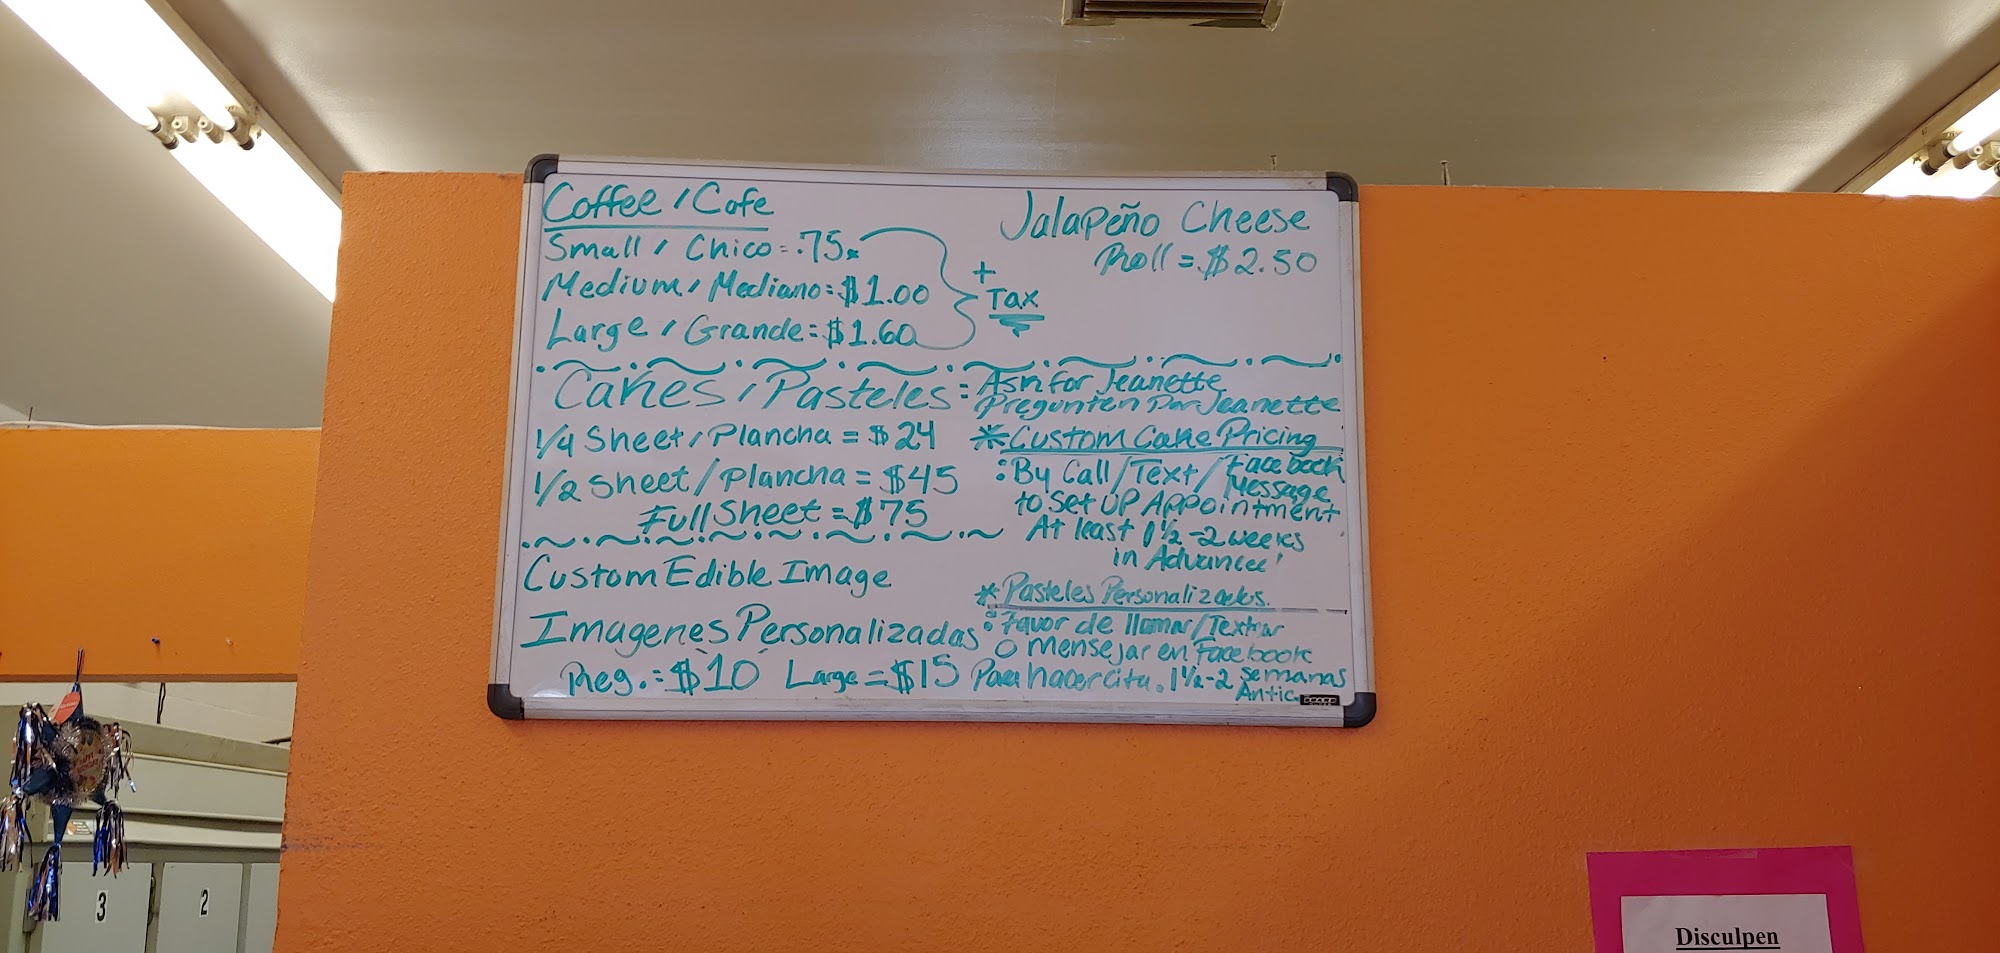 Coffee / Cafe
Small / Chico = .75
Medium / Mediano = $1.00
Large / Grande = $1.60
+
Tax
Jalapeño Cheese
Roll = $2.50
Cakes / Pasteles =
Ask for Jeanette
Pregunten Por Jeanette
1/4 Sheet / Plancha = $24
1/2 Sheet / Plancha = $45
Full Sheet = $75
* Custom Cake Pricing
: By Call / Text / Facebook
Message
to Set UP Appointment
At least 1 1/2 - 2 weeks
in Advance!
Custom Edible Image
Imagenes Personalizadas
Reg. = $10 Large = $15
* Pasteles Personalizados.
: Favor de llamar / Textiar
O mensejar en Facebook
Para hacer cita. 1 1/2 - 2 semanas
Antic.
3
2
Disculpen